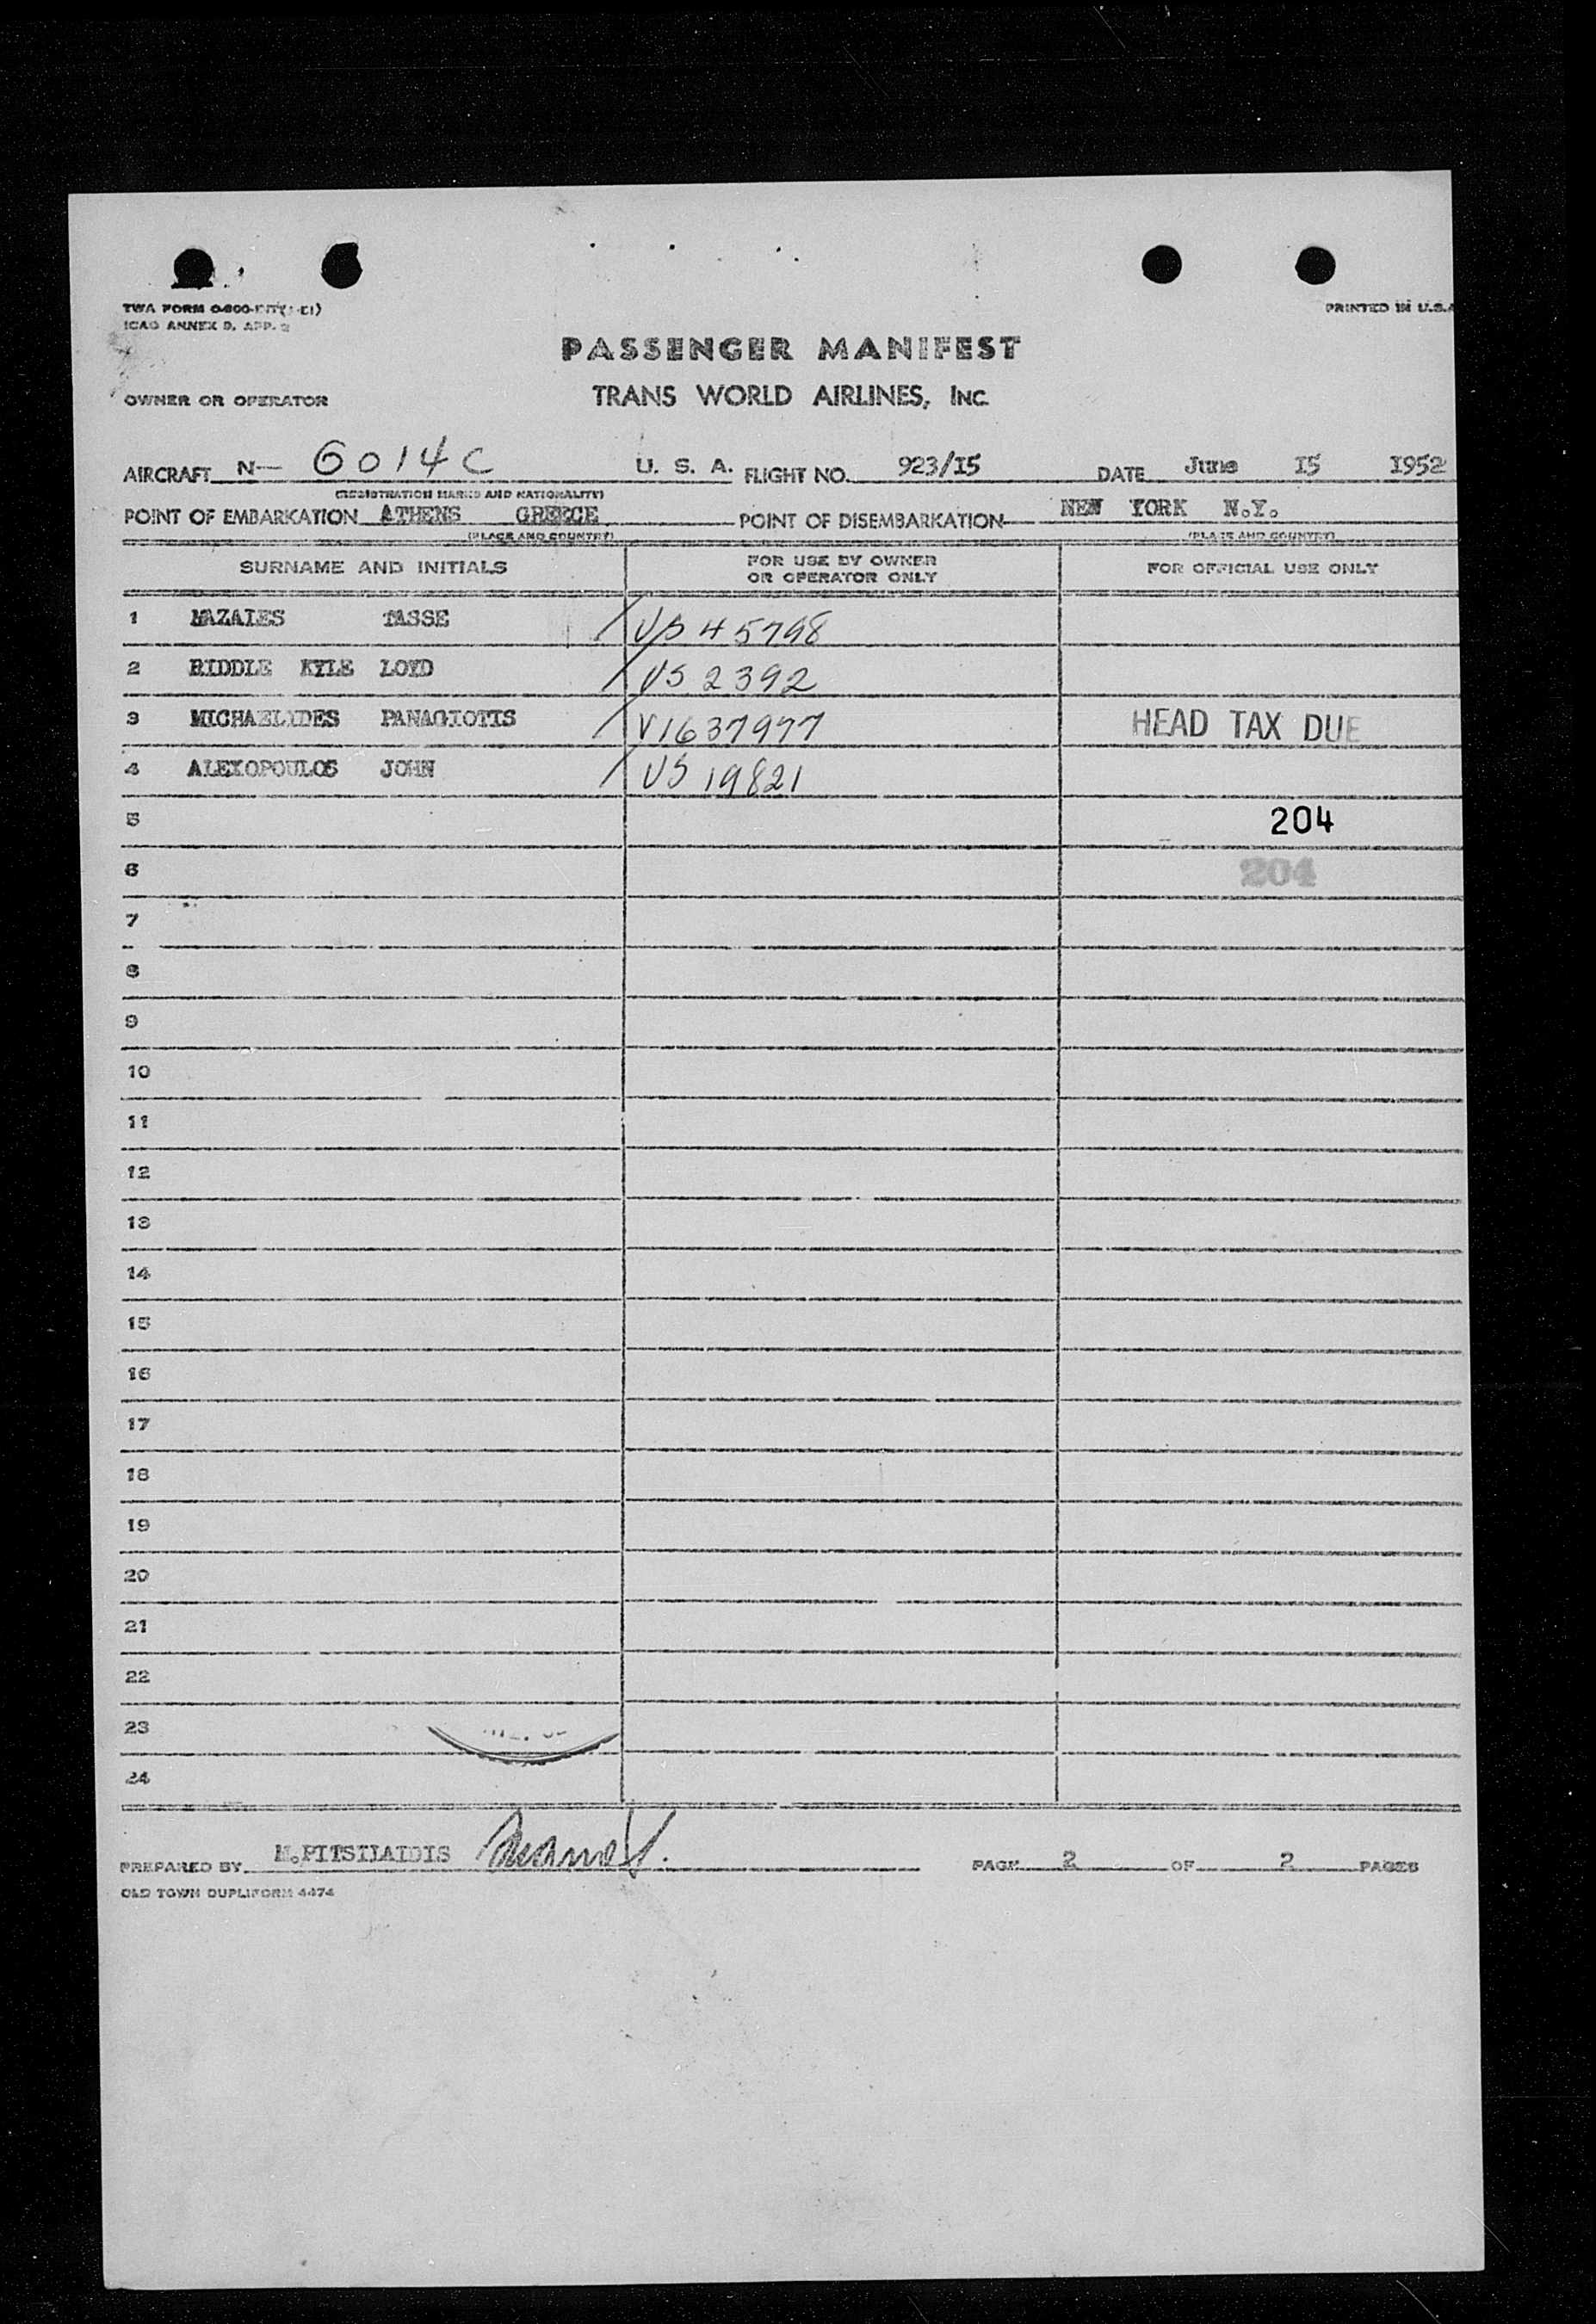 TWA FORM
ICAO ANNEX 9, APP. 2
PRINTED IN U.S.A
PASSENGER MANIFEST
OWNER OR OPERATOR
TRANS WORLD AIRLINES, INC.
AIRCRAFT N- 6014C U. S. A. FLIGHT NO. 923/I5 DATE June I5 I952
(REGISTRATION MARKS AND NATIONALITY)
POINT OF EMBARKATION ATHENS GREECE POINT OF DISEMBARKATION NEW YORK N.Y.
(PLACE AND COUNTRY) (PLACE AND COUNTRY)
SURNAME AND INITIALS FOR USE BY OWNER OR OPERATOR ONLY FOR OFFICIAL USE ONLY
1 MAZAIES TASSE VS 45798
2 RIDDLE KYLE LOYD VS 2392
3 MICHAELYDES PANAGIOTIS V1637977 HEAD TAX DUE
4 ALEXOPOULOS JOHN VS 19821
5 204
6 204
7
8
9
10
11
12
13
14
15
16
17
18
19
20
21
22
23
24
PREPARED BY M.PITSILAIDIS PAGE 2 OF 2 PAGES
OLD TOWN DUPLIFORM 4474